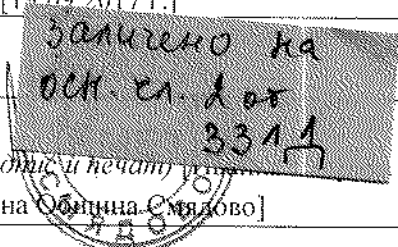 заличено на
осн. чл. 2 от
ЗЗЛД
и печат)
на Община Смядово]